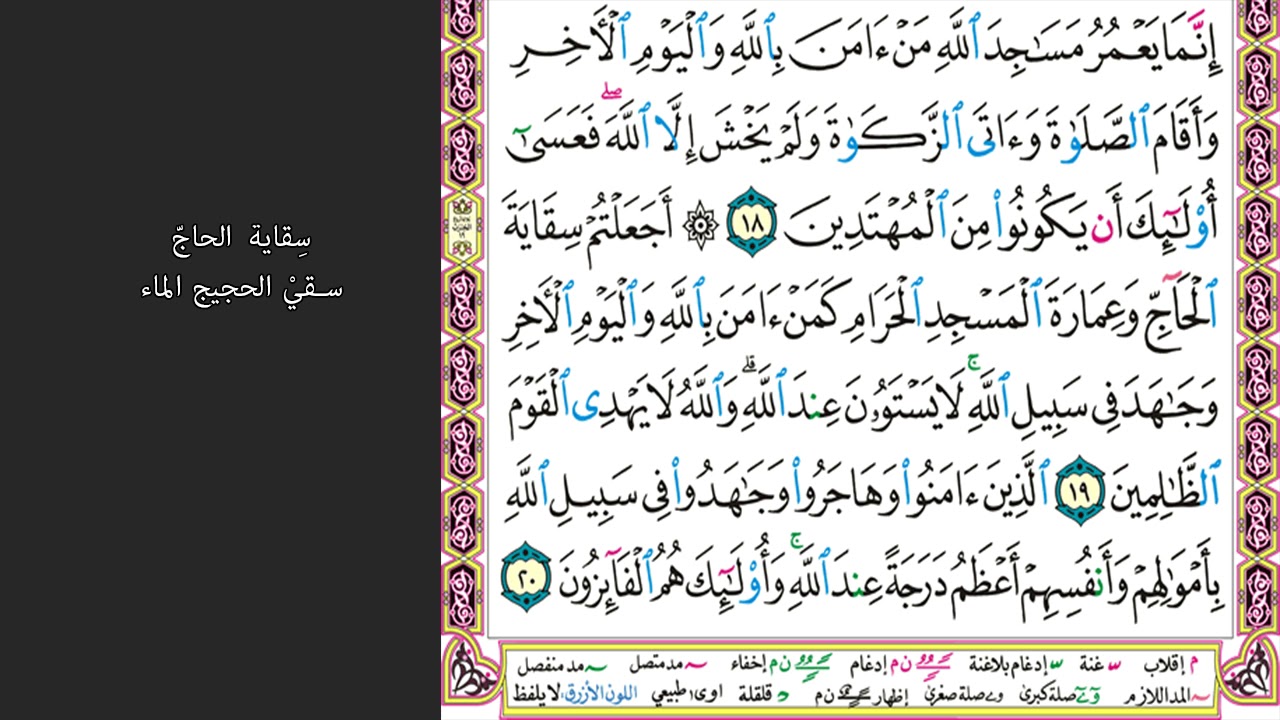 سِقاية الحاجّ
سـقيْ الحجيج الماء
إِنَّمَا يَعْمُرُ مَسَٰجِدَ ٱللَّهِ مَنْ ءَامَنَ بِٱللَّهِ وَٱلْيَوْمِ ٱلْأَخِرِ
وَأَقَامَ ٱلصَّلَوٰةَ وَءَاتَى ٱلزَّكَوٰةَ وَلَمْ يَخْشَ إِلَّا ٱللَّهَ ۖ فَعَسَىٰٓ
أُو۟لَٰٓئِكَ أَن يَكُونُوا۟ مِنَ ٱلْمُهْتَدِينَ ١٨ ۞ أَجَعَلْتُمْ سِقَايَةَ
ٱلْحَآجِّ وَعِمَارَةَ ٱلْمَسْجِدِ ٱلْحَرَامِ كَمَنْ ءَامَنَ بِٱللَّهِ وَٱلْيَوْمِ ٱلْأَخِرِ
وَجَٰهَدَ فِى سَبِيلِ ٱللَّهِ ۚ لَا يَسْتَوُۥنَ عِندَ ٱللَّهِ ۗ وَٱللَّهُ لَا يَهْدِى ٱلْقَوْمَ
ٱلظَّٰلِمِينَ ١٩ ٱلَّذِينَ ءَامَنُوا۟ وَهَاجَرُوا۟ وَجَٰهَدُوا۟ فِى سَبِيلِ ٱللَّهِ
بِأَمْوَٰلِهِمْ وَأَنفُسِهِمْ أَعْظَمُ دَرَجَةً عِندَ ٱللَّهِ ۚ وَأُو۟لَٰٓئِكَ هُمُ ٱلْفَآئِزُونَ ٢٠
م إقلاب س غنة س إدغام بلاغنة ن م إدغام ن م إخفاء مد متصل مد منفصل
المد اللازم صلة كبرى صلة صغرى إظهار ن م د قلقلة اوى طبيعي اللون الأزرق لا يلفظ